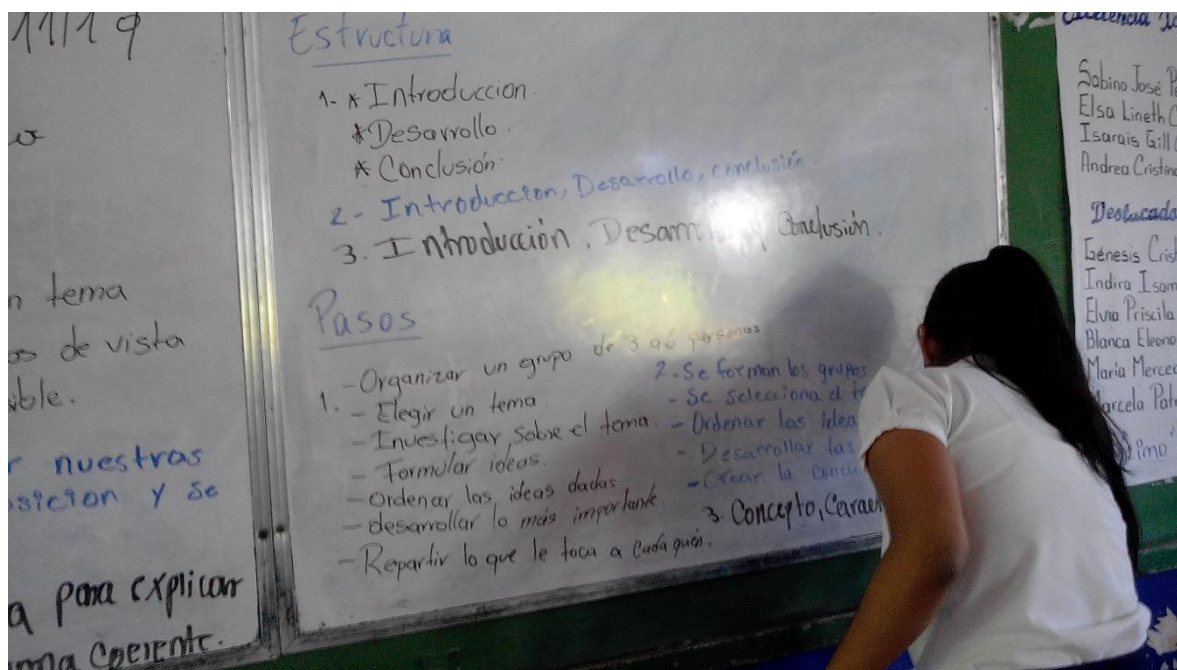 11/19
n tema
os de vista
ible.
r nuestras
sicion y se
a para explicar
ma coerente.
Estructura
1- * Introduccion.
* Desarrollo.
* Conclusión.
2- Introduccion, Desarrollo, conclusión.
3. Introducción, Desarrollo y Conclusión.
Pasos
1. - Organizar un grupo de 3 a 6 personas
- Elegir un tema.
- Investigar, sobre el tema.
- Formular ideas.
- Ordenar las ideas dadas
- desarrollar lo más importante.
- Repartir lo que le toca a cada quién.
2. Se forman los grupos
- Se selecciona el t
- Ordenar las idea
- Desarrollar las
- Crear la conclu
3. Concepto, Caract
Sabino José P
Elsa Lineth C
Isarais Gill
Andrea Cristina
Destacado
Génesis Crist
Indira Isam
Elvia Priscila
Blanca Eleono
Maria Merced
Marcela Pat